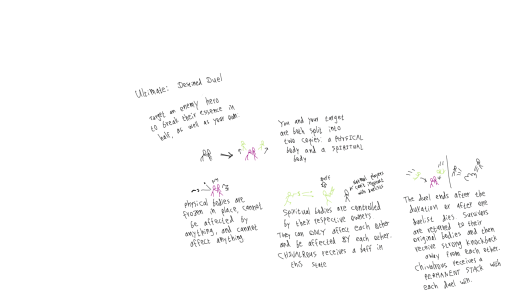 Ultimate: Destined Duel
Target an enemy hero
to break their essence in
half, as well as your own.
You and your target
are both split into
two copies: a PHYSICAL
body and a SPIRITUAL
body
physical bodies are
frozen in place, cannot
be affected by
anything, and cannot
affect anything
buff
players
Spiritual bodies are controlled
by their respective owners
They can ONLY affect each other
and be affected BY each other.
CHIVALROUS receives a buff in
this state
The duel ends after the
duration or after one
duelist dies. Survivors
are returned to their
original bodies and then
receive strong knockback
away from each other.
Chivalrous receives a
PERMANENT STACK with
each duel win.